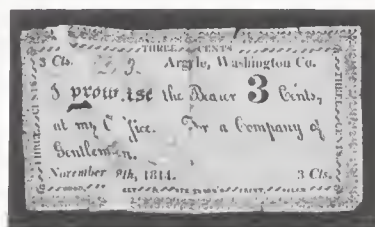 THREE CENTS
3 Cts. Argyle, Washington Co.
I promise the Bearer 3 Cents,
at my Office. For a Company of
Gentlemen.
November 9th, 1814. 3 Cts.
THREE CENTS
THREE CENTS